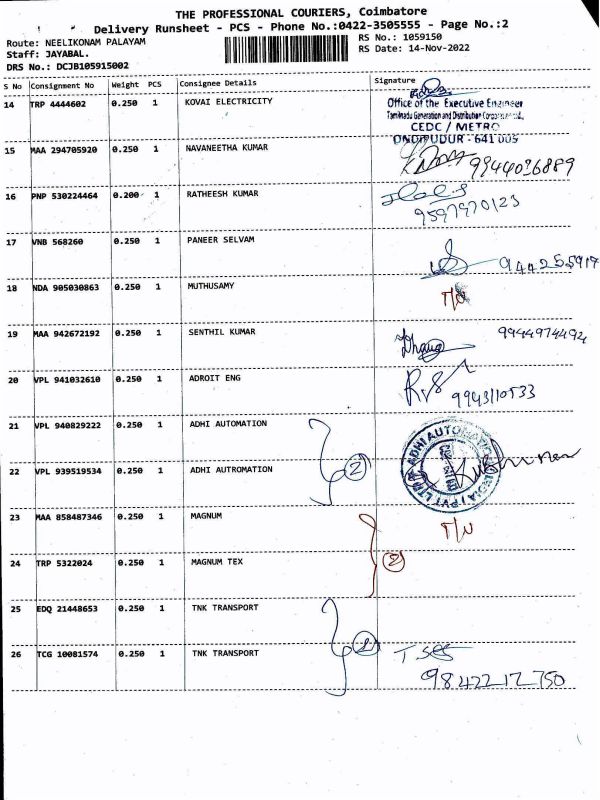 THE PROFESSIONAL COURIERS, Coimbatore
Delivery Runsheet - PCS - Phone No.:0422-3505555 - Page No.:2
Route: NEELIKONAM PALAYAM RS No.: 1059150
Staff: JAYABAL. RS Date: 14-Nov-2022
DRS No.: DCJB105915002
S No Consignment No Weight PCS Consignee Details Signature
14 TRP 4444602 0.250 1 KOVAI ELECTRICITY
Office of the Executive Engineer
Tamilnadu Generation and Distribution
CEDC / METRO
ONDIPUDUR - 641 005
15 MAA 294705920 0.250 1 NAVANEETHA KUMAR
9944036889
16 PNP 530224464 0.200 1 RATHEESH KUMAR
9597970123
17 VNB 568260 0.250 1 PANEER SELVAM
18 NDA 905030863 0.250 1 MUTHUSAMY
19 MAA 942672192 0.250 1 SENTHIL KUMAR 9944974494
20 VPL 941032610 0.250 1 ADROIT ENG
9943110533
21 VPL 940829222 0.250 1 ADHI AUTOMATION
22 VPL 939519534 0.250 1 ADHI AUTROMATION 2
23 MAA 858487346 0.250 1 MAGNUM
24 TRP 5322024 0.250 1 MAGNUM TEX 2
25 EDQ 21448653 0.250 1 TNK TRANSPORT
26 TCG 10081574 0.250 1 TNK TRANSPORT
98422 17 750